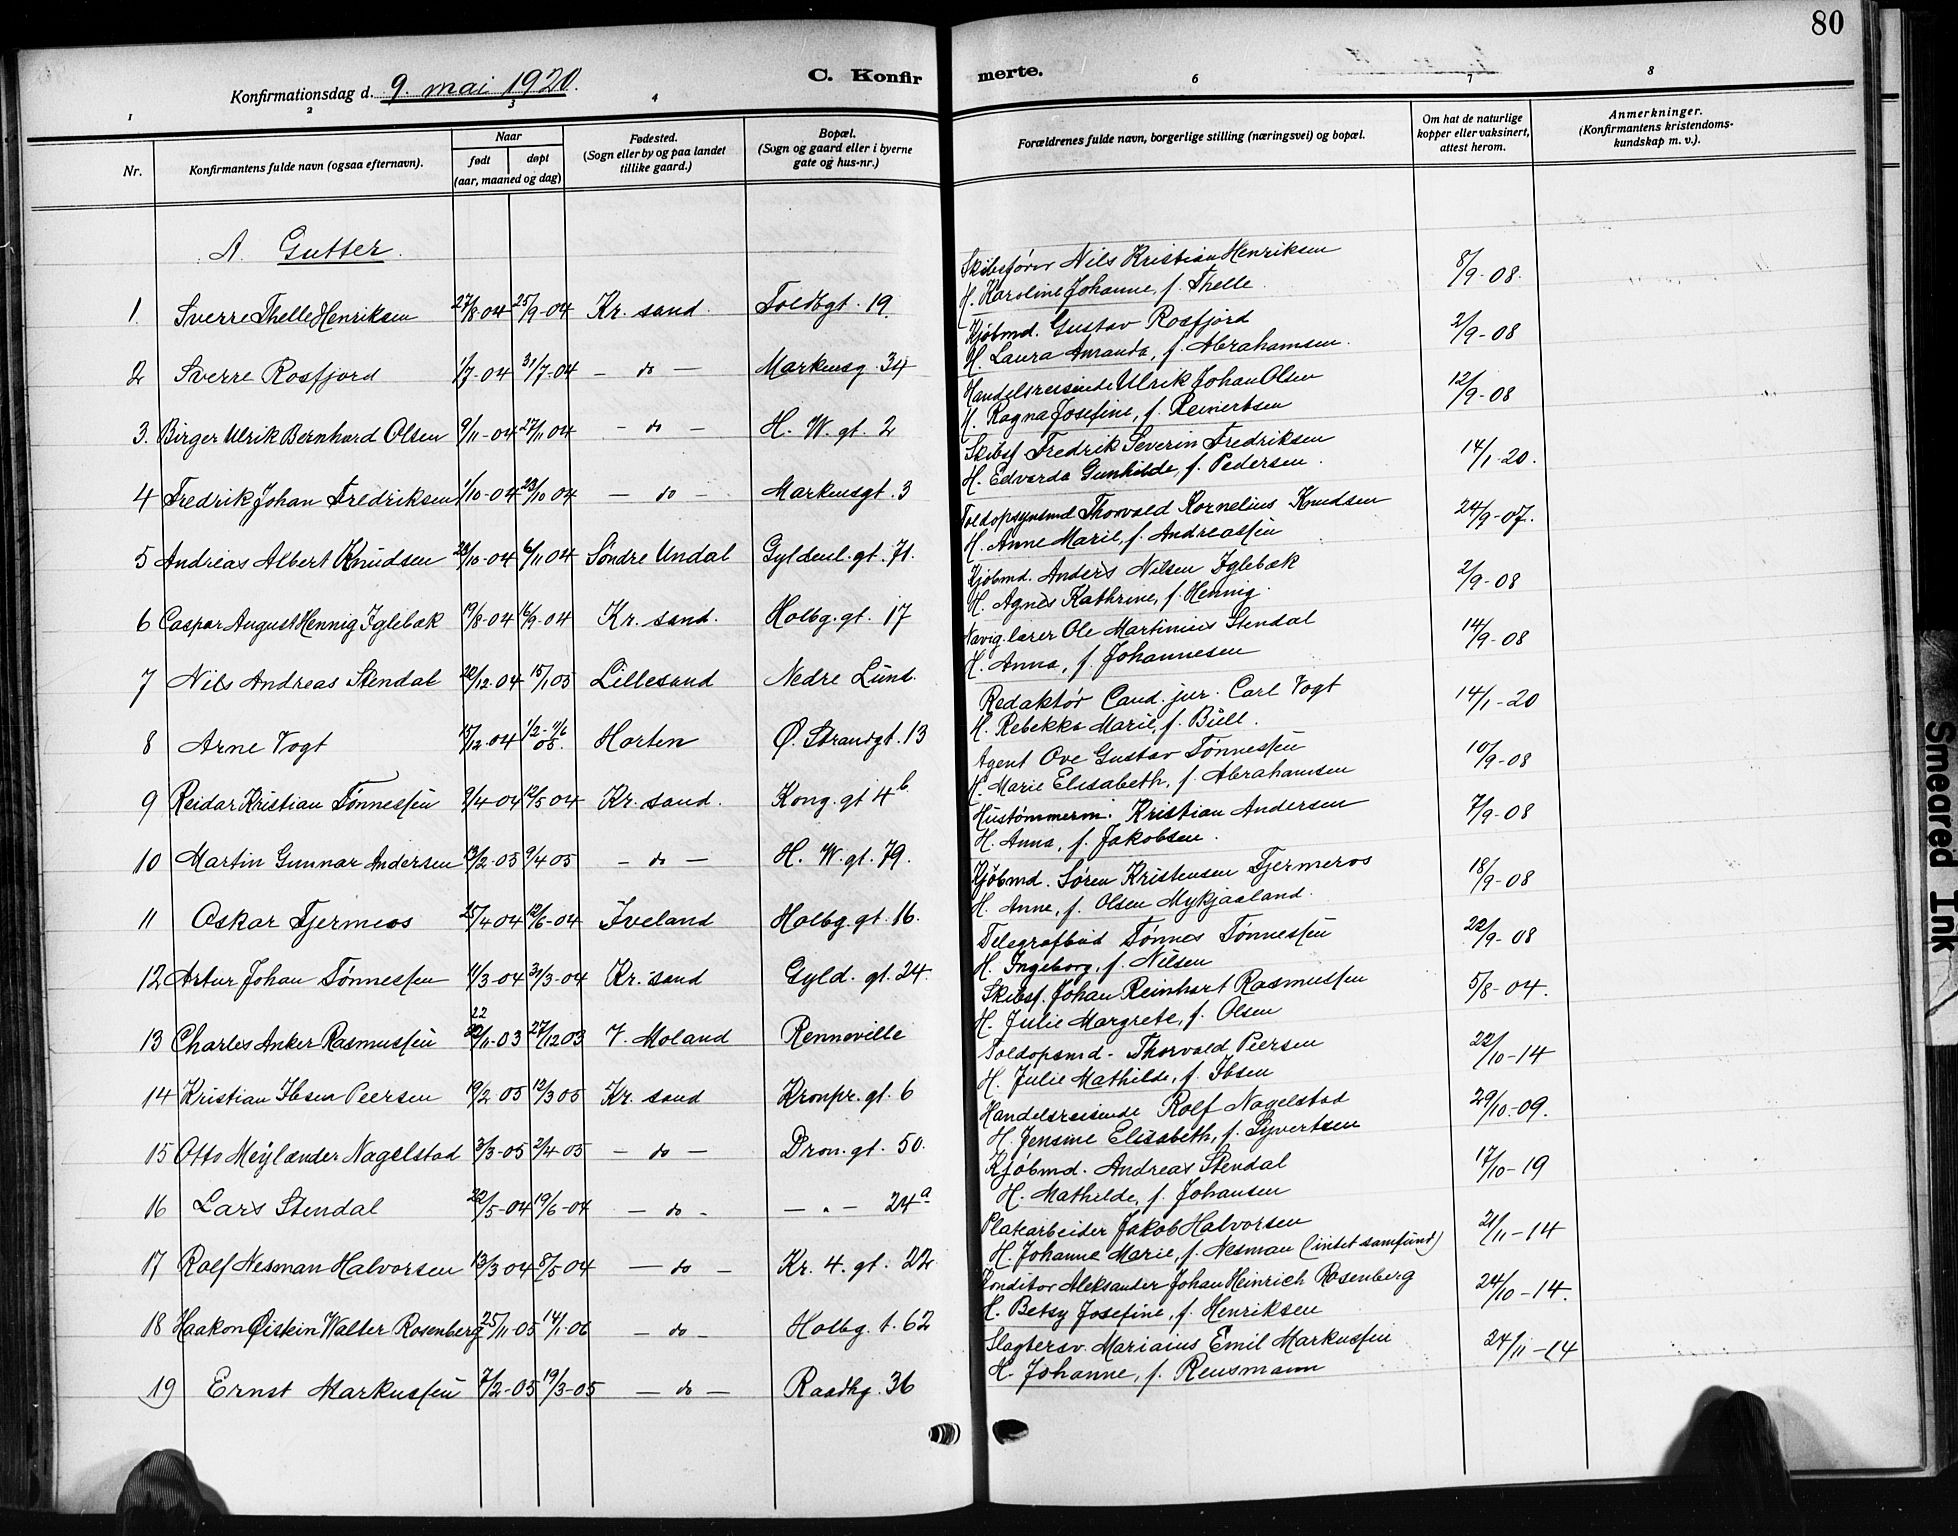 80
Konfirmationsdag d. 9. mai 1920.
C. Konfirmerte.
1 2 3 4 6 7 8
Nr.
Konfirmantens fulde navn (ogsaa efternavn).
Naar
født
døpt
(aar, maaned og dag)
Fødested.
(Sogn eller by og paa landet
tillike gaard.)
Bopæl.
(Sogn og gaard eller i byerne
gate og hus-nr.)
Forældrenes fulde navn, borgerlige stilling (næringsvei) og bopæl.
Om hat de naturlige
kopper eller vaksinert,
attest herom.
Anmerkninger.
(Konfirmantens kristendoms-
kundskap m. v.).
A Gutter.
1. Sverre Thelle Henriksen 27/8-04 25/9-04 Kr. sand. Toldbgt. 19.
Skibsfører Nils Kristian Henriksen 8/9-08.
H. Karoline Johanne, f. Thelle.
2 Sverre Rosfjord 1/7-04 31/7-04 - do - Markensg. 34
Kjøbmd. Gustav Rosfjord 2/9-08
H. Laura Amanda, f. Abrahamsen.
3. Birger Ulrik Bernhard Olsen 9/11-04 27/11 04 - do - H. W. gt. 2
Handelsreisende Ulrik Johan Olsen 12/9-08
H. Ragna Josefine, f. Reinertsen
4 Fredrik Johan Fredriksen 1/10-04 23/10 04 - do - Markensgt. 3
Skibsf. Fredrik Severin Fredriksen 14/1-20.
H. Edvarda Gunhilde, f. Pedersen.
5 Andreas Albert Knudsen 23/10-04 6/11 04 Søndre Undal Gyldenl. gt. 71.
Toldopsynsmd Thorvald Kornelius Knudsen 24/9-07.
H. Anne Marie, f. Andreassen
6 Caspar August Hennig Iglebæk 19/8-04 16/9-04 Kr. sand. Holbg. gt. 17
Kjøbmd. Anders Nilsen Iglebæk 2/9-08
H. Agnes Kathrine, f. Hennig.
7 Nils Andreas Stendal 20/12-04 15/1 05 Lillesand Nedre Lund.
Navig. lærer Ole Martinius Stendal 14/9-08
H. Anna, f. Johannesen
8 Arne Vogt 15/12-04 1/2-11/6 05. Horten Ø. Strandgt. 13
Redaktør Cand. jur. Carl Vogt 14/1-20
H. Rebekka Marie, f. Bull.
9 Reidar Kristian Tønnessen 9/4-04 12/5 04 Kr. sand. Kong. gt 4b.
Agent Ove Gustav Tønnessen 10/9-08
H. Marie Elisabeth, f. Abrahamsen
10 Martin Gunnar Andersen 13/2-05 9/4 05 - do - H. W. gt. 79.
Hustømmerm. Kristian Andersen 7/9-08
H. Anna, f. Jakobsen.
11 Oskar Tjermeos 25/4-04 12/6-04 Iveland Holbg. gt. 16.
Kjøbmd. Søren Kristensen Tjermeros 18/9-08
H. Anne, f. Olsen Mykjaaland.
12 Artur Johan Tønnessen 11/3-04 31/3-04 Kr. sand Gyld. gt. 24.
Telegrafbud Tønnes Tønnessen 22/9-08
H. Ingeborg, f. Nilsen
22
13 Charles Anker Rasmussen 22/11-03 27/12 03 V. Moland Renneville
Skibsf. Johan Reinhart Rasmussen 5/8-04.
H. Julie Margrete, f. Olsen
14 Kristian Ibsen Peersen 19/2 05 12/3 05 Kr. sand Kronpr. gt. 6
Toldopsmd. Thorvald Peersen 22/10-14
H. Julie Mathilde, f. Ibsen
15 Otto Meylænder Nagelstad 3/3-05 2/4-05 - do - Dron. gt. 50.
Handelsreisende Rolf Nagelstad 29/10-09.
H. Jensine Elisabeth, f. Syvertsen
16 Lars Stendal 22/5-04 19/6-04 - do - - " - 24a
Kjøbmd. Andreas Stendal 17/10-19
H. Mathilde, f. Johansen
17 Rolf Nesman Halvorsen 13/3 04 8/5 04 - do - Kr. 4. gt. 22
Platearbeider Jakob Halvorsen 21/11-14
H. Johanne Marie, f. Nesman (intet samfund)
18 Haakon Øistein Walter Rosenberg 25/11-05 14/1-06 - do - Holbg. t. 62
Konditor Aleksander Johan Heinrich Rosenberg 24/10-14.
H. Betsy Josefine, f. Henriksen
19 Ernst Markussen 7/2-05 19/3-05 - do - Raadhg. 36
Slagtersv. Mariaius Emil Markussen 24/11-14
H. Johanne, f. Reusmann
Smeared Ink